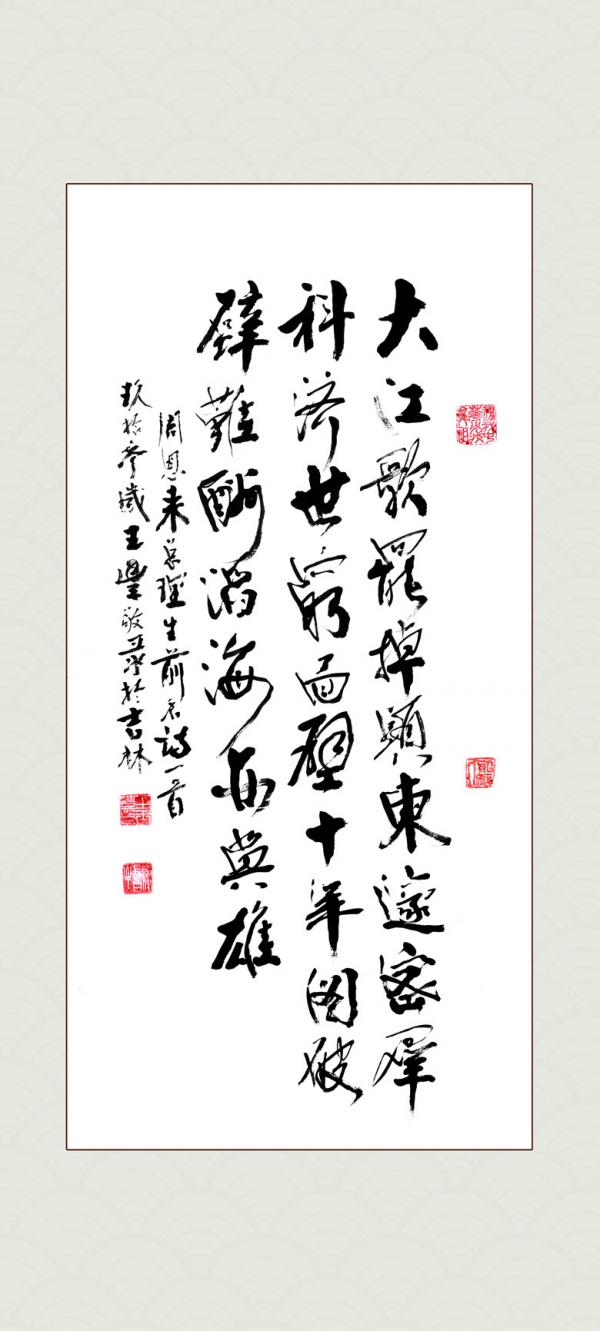 大江歌罷掉頭東邃密群
科济世窮面壁十年图破
壁難酬蹈海亦英雄
周恩来总理生前名诗一首
玖拾叁歲王豐敬录於吉林